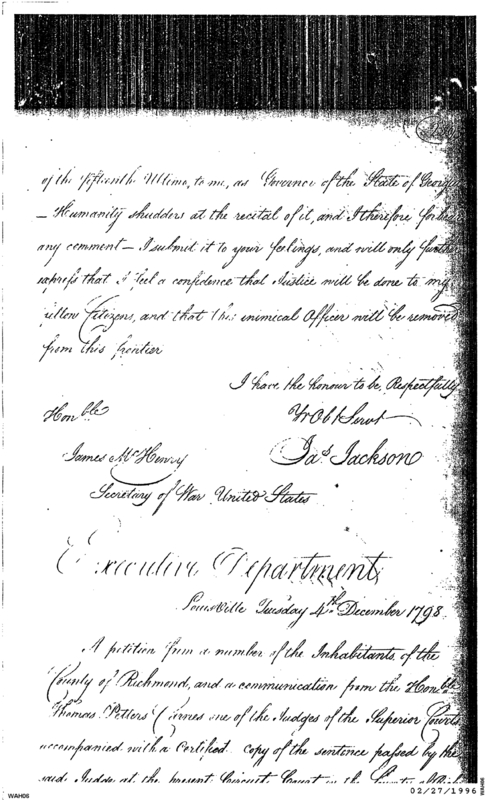 of the fifteenth Ultimo, to me, as Governor of the State of Georgia
— Humanity shudders at the recital of it, and I therefore forbear
any comment — I submit it to your feelings, and will only further
express that I feel a confidence that Justice will be done to my
fellow Citizens, and that this inimical Officer will be removed
from this frontier
I have the honour to be, Respectfully
Honble Yr Obt Servt
James McHenry Jas Jackson
Secretary of War United States
Executive Department,
Louisville Tuesday 4th December 1798
A petition from a number of the Inhabitants, of the
County of Richmond, and a communication from the Honble
Thomas Petters Carnes one of the Judges of the Superior Courts
accompanied with a Certified copy of the sentence passed by the
said Judge at the present Circuit Court in the County
02/27/1996
WAH06
WAH06